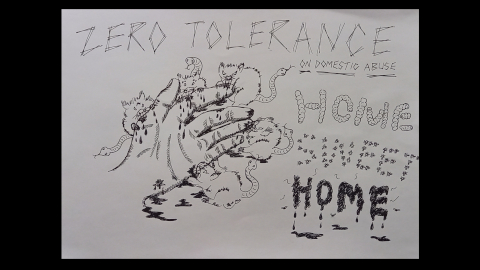 ZERO TOLERANCE
ON DOMESTIC ABUSE
HOME
HOME